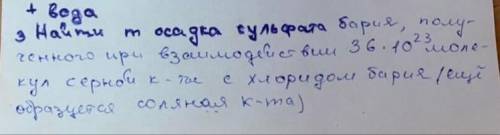 + вода
3 Найти m осадка сульфата бария, полу-
ченного при взаимодействии 36·10²³ моле-
кул серной к-ты с хлоридом бария (ещё
образуется соляная к-та)